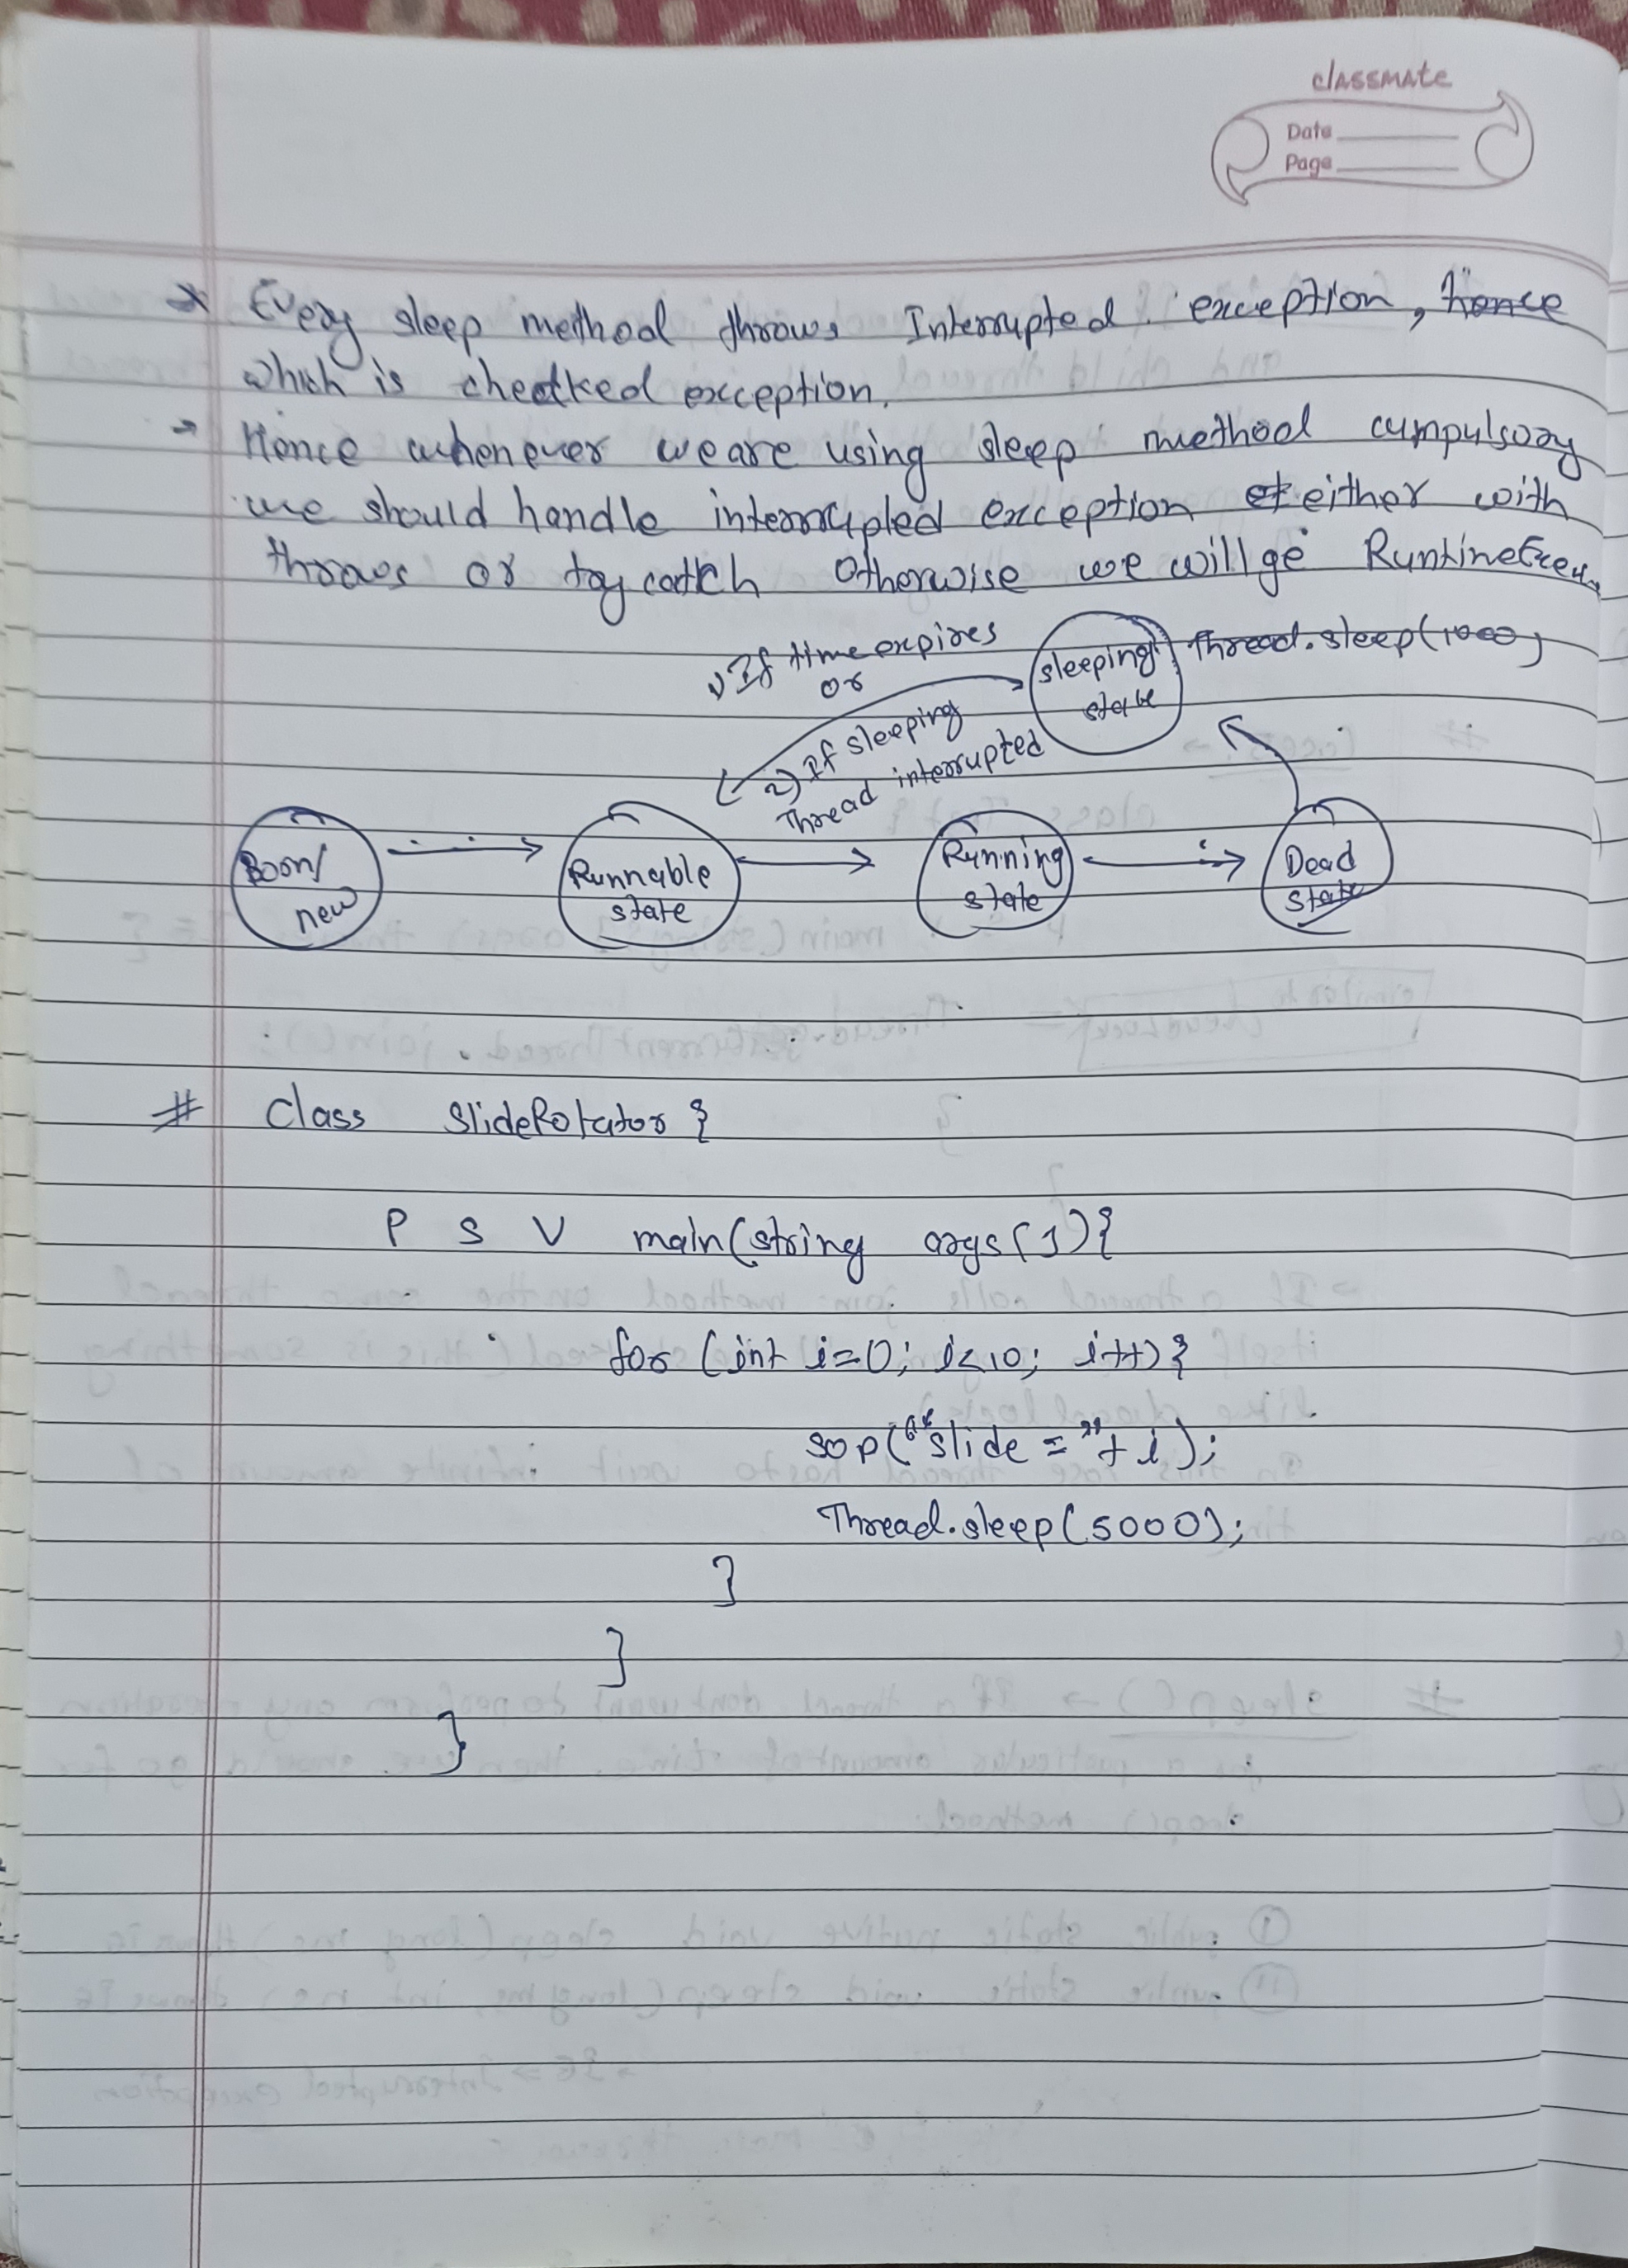 classmate
Date
Page
* Every sleep method throws Interrupted exception, hence
which is checked exception.
→ Hence whenever we are using sleep method cumpulsory
we should handle interrupted exception et either with
throws or try catch Otherwise we will ge
1) If time expires
or
2) If sleeping
Thread interrupted
sleeping
state
Thread.sleep(1000)
Born/
new
Runnable
state
Running
state
Dead
state
# Class SlideRotator {
P S V main(string args[]){
for (int i=0; i<10; i++){
sop("slide = "+ i);
Thread.sleep(5000);
}
}
}